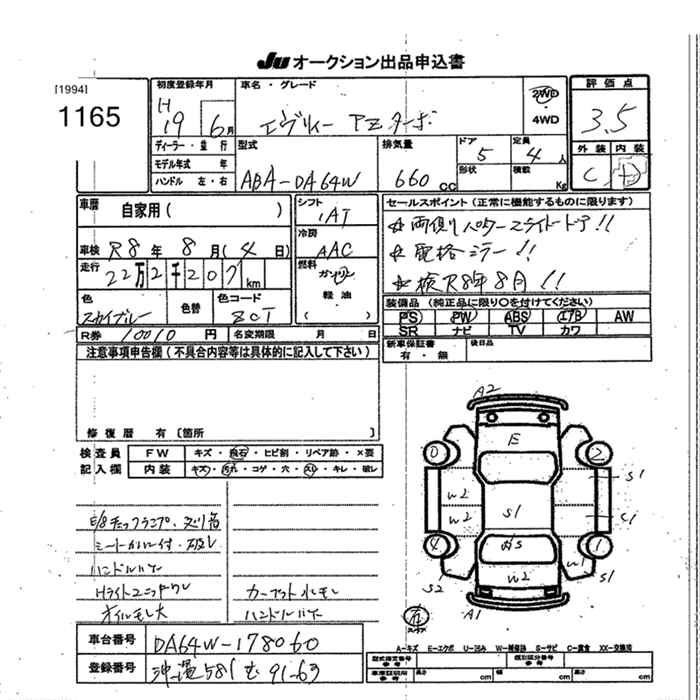 JU オークション出品申込書
[1994]
1165
初度登録年月
H 19 6月
ディーラー・並行
モデル年式 年
ハンドル 左・右
車名・グレード
エヴリィー PZターボ
2WD
4WD
評価点
3.5
外装 内装
C D
型式
ABA-DA64W
排気量
660 cc
ドア
5
形状
定員
4人
積載
Kg
車歴
自家用( )
車検 R8年 8月( 4日)
走行 22万2千207km
色
スカイブルー
色替
色コード
ZCT
シフト
IAT
冷房
AAC
燃料
ガソリン
軽油
( )
セールスポイント(正常に機能するものに限ります)
☆両側パワースライドドア!!
☆電格ミラー!!
☆検R8年8月!!
装備品(純正品に限り○を付けてください)
PS PW ABS エアB AW
SR ナビ TV カワ
R券 10010円
名変期限 月 日
新車保証書
有・無
後日品
注意事項申告欄(不具合内容等は具体的に記入して下さい)
修復歴 有〔箇所
検査員
記入欄
FW キズ・飛石・ヒビ割・リペア跡・×要
内装 キズ・汚れ・コゲ・穴・スレ・キレ・破レ
シートカバー付・破レ
オイルモレ大
A2
E
0 2
W2 S1
W2 S1
4 1
W2
S2
A1
車台番号 DA64W-178060
登録番号 沖縄 581 む 91-63
A-キズ E-エクボ U-凹み W-補修跡 S-サビ C-腐食 XX-交換済
型式指定番号
参考
類別区分番号
参考
車庫証明用
参考
長さ cm
幅 cm
高さ cm